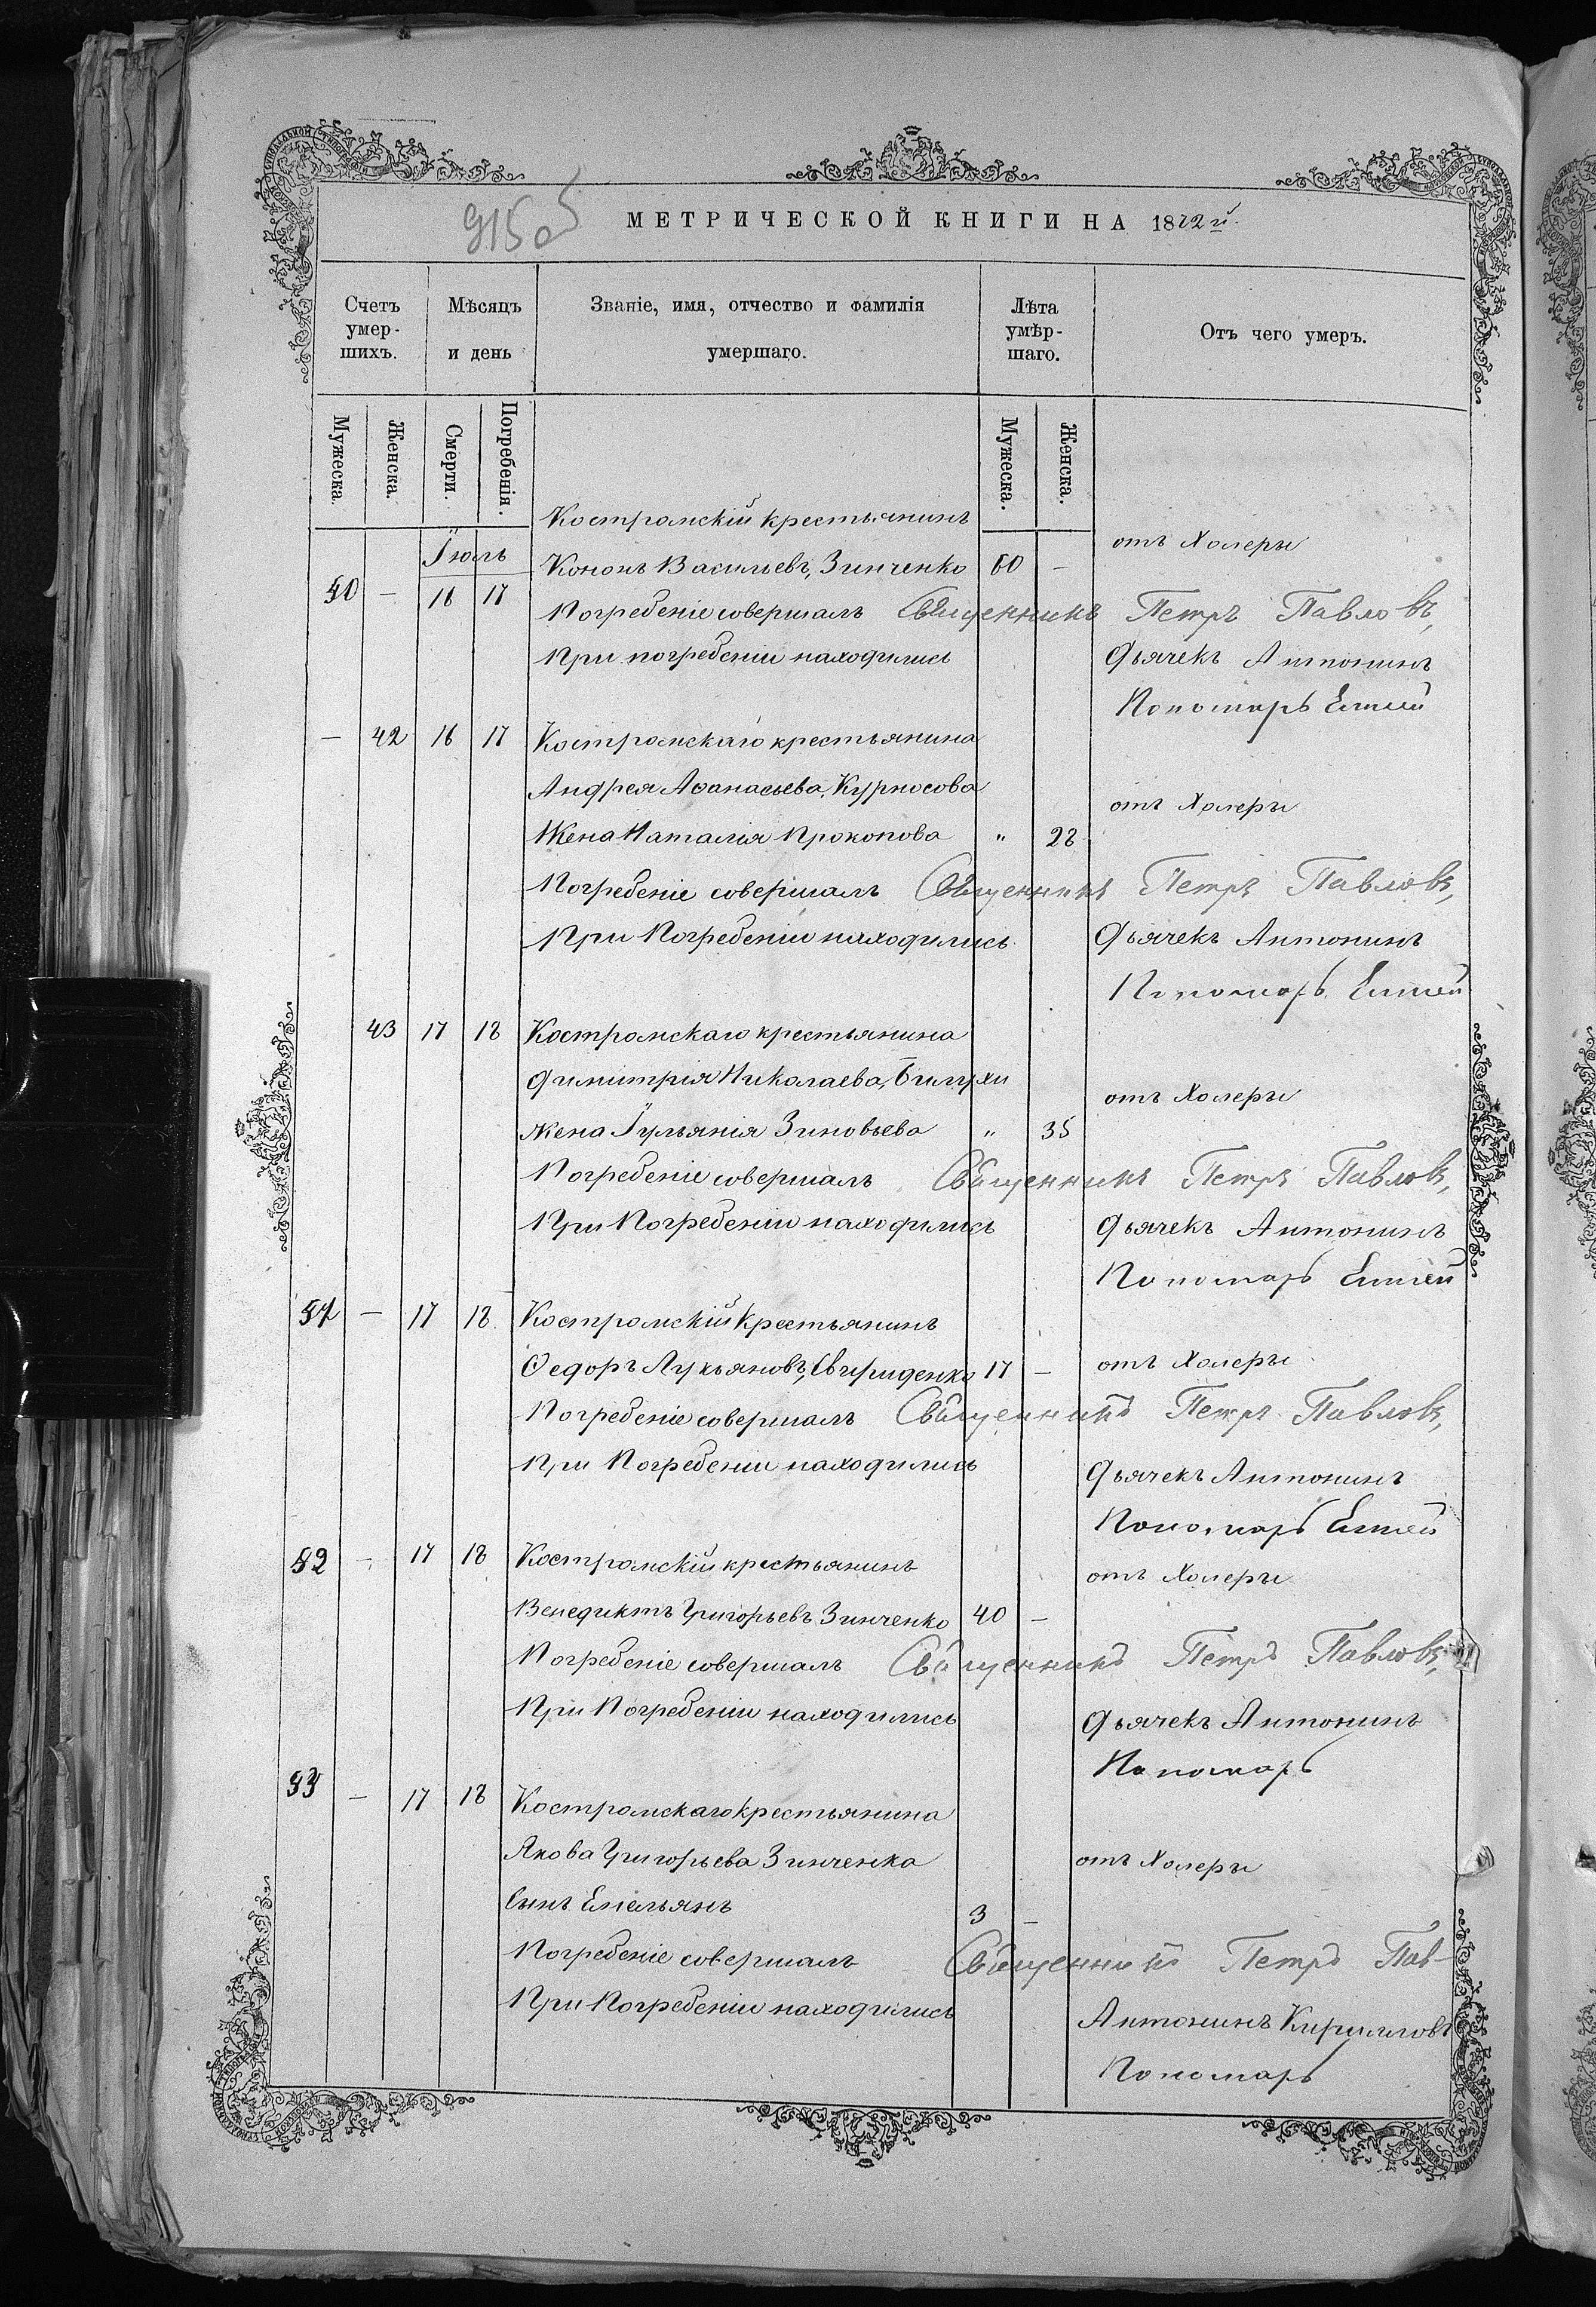 915 об
МЕТРИЧЕСКОЙ КНИГИ НА 1872 й.
Счетъ умер- шихъ.
Мѣсяцъ и день
Званіе, имя, отчество и фамилія умершаго.
Лѣта умѣр- шаго.
Отъ чего умеръ.
Мужеска. Женска. Смерти. Погребенія. Мужеска. Женска.
Костромскій крестьянинъ
Іюль отъ Холеры
Кононъ Васильевъ, Зинченко 60 —
50 — 16 17
Погребеніе совершалъ Священникъ Петръ Павловъ,
При погребеніи находились Дьячекъ Антонинъ
Пономарь
— 42 16 17 Костромскаго крестьянина
Андрея Аѳанасьева, Курносова отъ Холеры
Жена Наталія Прокопова „ 28
Погребеніе совершалъ Священникъ Петръ Павловъ,
При Погребеніи находились Дьячекъ Антонинъ
Пономарь
43 17 18 Костромскаго крестьянина
Димитрія Николаева, Билухи отъ Холеры
жена Іульянія Зиновьева „ 35
Погребеніе совершалъ Священникъ Петръ Павловъ,
При Погребеніи находились Дьячекъ Антонинъ
Пономарь
51 — 17 18 Костромскій Крестьянинъ
Ѳедоръ Лукьяновъ, Свириденко 17 — отъ Холеры
Погребеніе совершалъ Священникъ Петръ Павловъ,
При Погребеніи находились Дьячекъ Антонинъ
Пономарь
52 — 17 18 Костромскій крестьянинъ отъ Холеры
Венедиктъ Григорьевъ Зинченко 40 —
Погребеніе совершалъ Священникъ Петръ Павловъ,
При Погребеніи находились Дьячекъ Антонинъ
Пономарь
53 — 17 18 Костромскаго крестьянина
Якова Григорьева Зинченка отъ Холеры
Сынъ Емельянъ 3 —
Погребеніе совершалъ Священникъ Петръ Пав-
При Погребеніи находились Антонинъ Кирилловъ
Пономарь